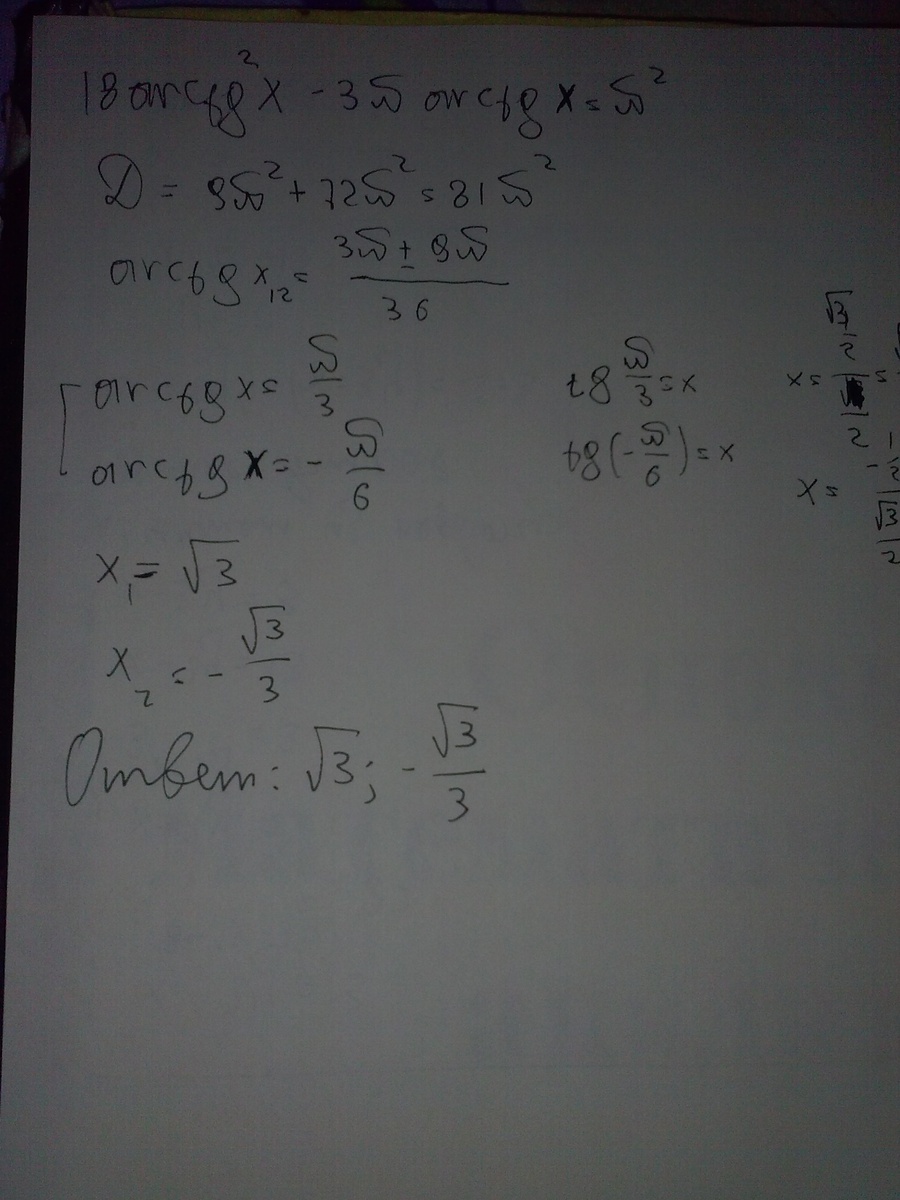 18 arctg² x - 3π arctg x = π²
D = 9π² + 72π² = 81π²
arctg x₁₂ = (3π ± 9π)/36
[ arctg x = π/3
arctg x = - π/6
tg π/3 = x
tg(-π/6) = x
x = (√3/2)/(1/2) =
x = (-1/2)/(√3/2)
x₁ = √3
x₂ = - √3/3
Ответ: √3; - √3/3